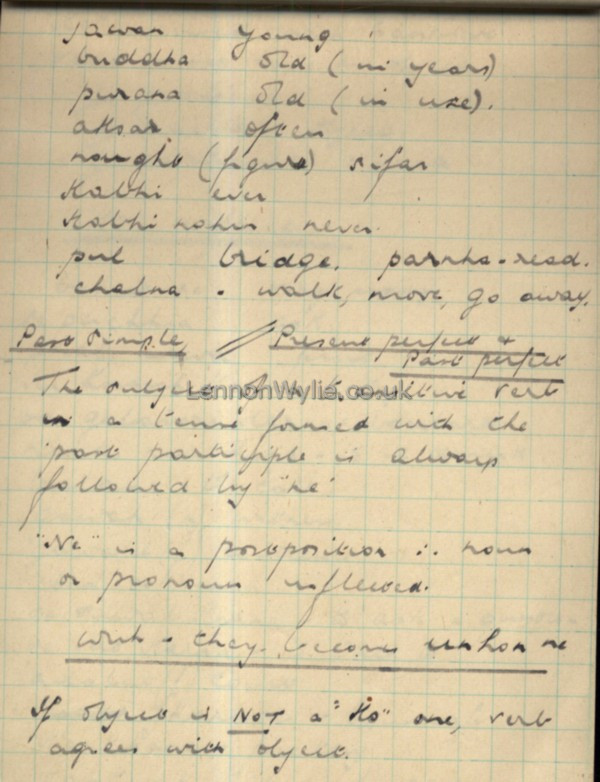 jawan young
buddha old (in years)
purana old (in use).
aksar often
nought (figure) sifar
Kabhi ever
Kabhi nahin never.
pul bridge. parhna - read.
chalna - walk, move, go away.
Past Simple, // Present perfect +
Past perfect
The subject of a transitive verb
in a tense formed with the
past participle is always
followed by "ne"
LennonWylie.co.uk
"Ne" is a postposition ∴ noun
or pronoun inflected.
- they becomes unhon ne
If object is NOT a "Ko" one, verb
agrees with object.